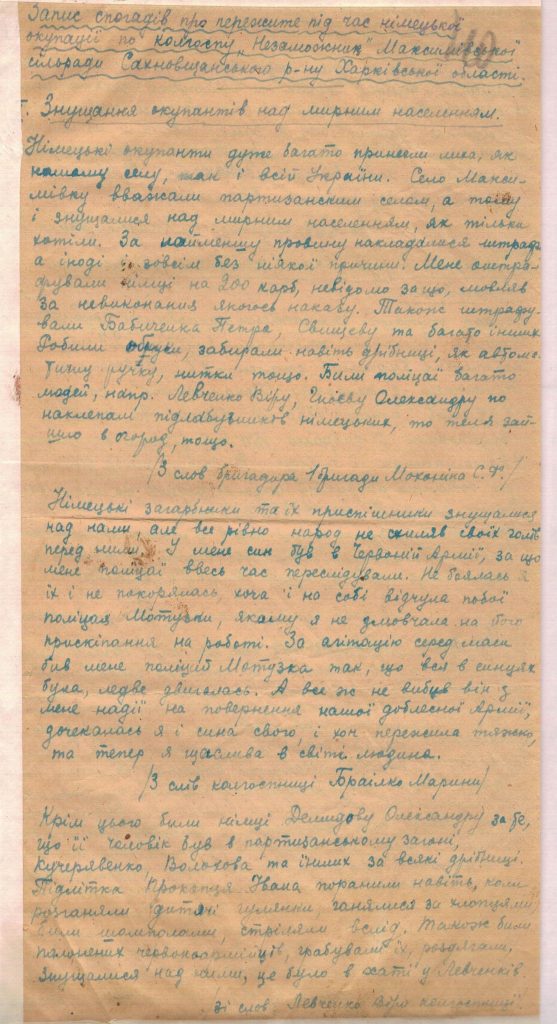 Запис спогадів про пережите під час німецької
окупації по колгоспу „Незаможник" Максимівської
сільради Сахновщанського р-ну Харківської області.
І. Знущання окупантів над мирним населенням.
Німецькі окупанти дуже багато принесли лиха, як
нашому селу, так і всій Україні. Село Макси-
мівку вважали партизанським селом, а тому
і знущалися над мирним населенням, як тільки
хотіли. За найменшу провину накладалися штрафи
а іноді й зовсім без ніякої причини. Мене оштра-
фували німці на 200 карб, невідомо за що, мовляв
за невиконання якогось наказу. Також штрафу-
вали Бабиченка Петра, Свищеву та багато інших
Робили обшуки, забирали навіть дрібниці, як автома-
тичну ручку, нитки тощо. Били поліцаї багато
людей, напр. Левченко Віру, Олександру по
наклепам підлабузників німецьких, то теля зай-
шло в огород, тощо.
/З слов бригадира 1 бригади Мохоніна С.Ф./
Німецькі загарбники та їх приспішники знущалися
над нами, але все рівно народ не схиляв своїх голів
перед ними. У мене син був в Червоній Армії, за що
мене поліцаї ввесь час переслідували. Не боялась я
їх і не покорялась, хоча і на собі відчула побої
поліцая Мотузки, якому я не змовчала на його
прискіпання на роботі. За агітацію серед маси
бив мене поліцай Мотузка так, що вся в синцях
була, ледве двигалась. А все ж не вибув він з
мене надії на повернення нашої доблесної Армії,
дочекалась я і сина свого, і хоч пережила тяжко,
та тепер я щаслива в світі людина.
/З слів колгоспниці Браілко Марини/
Крім цього били німці Демидову Олександру за те,
що її чоловік був в партизанському загоні,
Кучерявенко, Волохова та інших за всякі дрібниці.
Підлітка Прокопця Івана поранили навіть, коли
розганяли дитячі гулянки ганялися за хлопцями
били шомполами, стріляли вслід. Також били
полонених червоноармійців, грабували їх, роздягали,
знущалися над ними, це було в хаті у Левченків.
зі слов Левченко Віри колгоспниці.